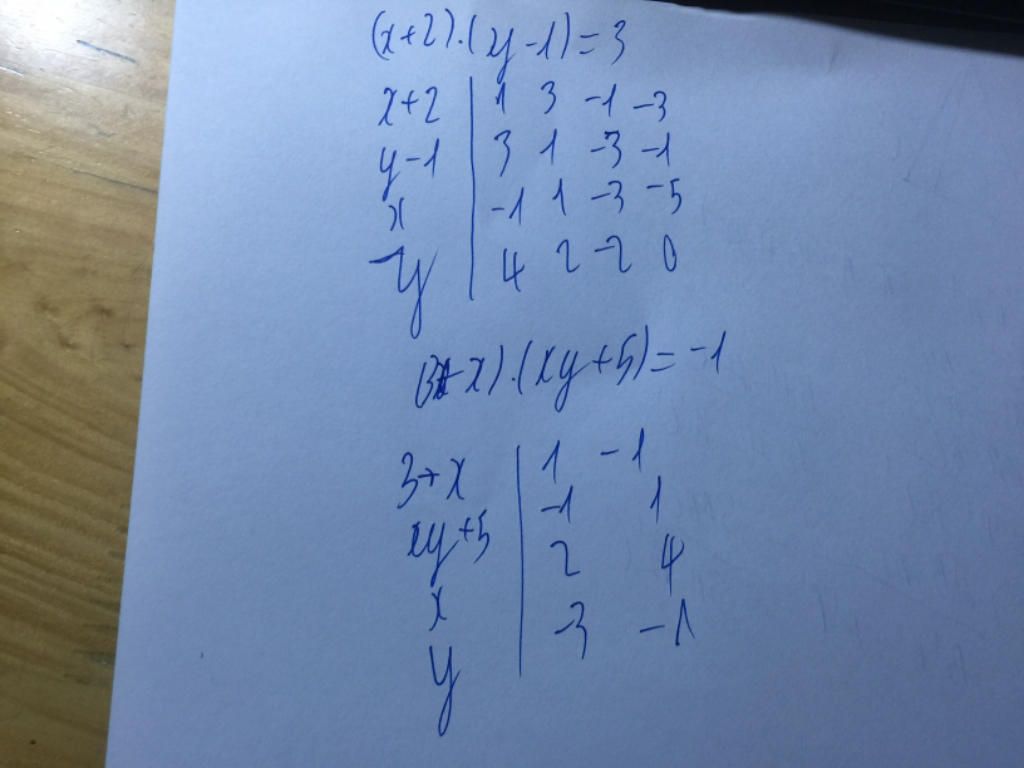 (x+2).(y-1)=3
x+2 | 1 3 -1 -3
y-1 | 3 1 -3 -1
x | -1 1 -3 -5
y | 4 2 -2 0
(3-x).(xy+5)=-1
3+x | 1 -1
xy+5 | -1 1
x | 2 4
y | -3 -1